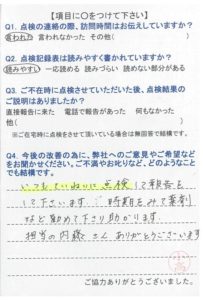 【項目に○をつけて下さい】
Q1. 点検の連絡の際、訪問時間はお伝えしていますか?
言われた 言われなかった その他( )
Q2. 点検記録表は読みやすく書かれていますか?
読みやすい 一応読める 読みづらい 読めない部分がある
Q3. ご不在時に点検させていただいた後、点検結果の
ご説明はありましたか?
直接報告に来た 電話で報告があった 何もなかった
他( )
※ご在宅時に点検をさせて頂いている場合は無回答で結構です。
Q4. 今後の改善の為に、弊社へのご意見やご希望など
をお聞かせください。ご不満やお叱りなど、どのようなこと
でも結構です。
いつもていねいに点検して報告を
して下さいます。時期をみて薬剤
など勧めて下さり助かります。
担当の内藤さんありがとうございます
ご協力ありがとうございました。